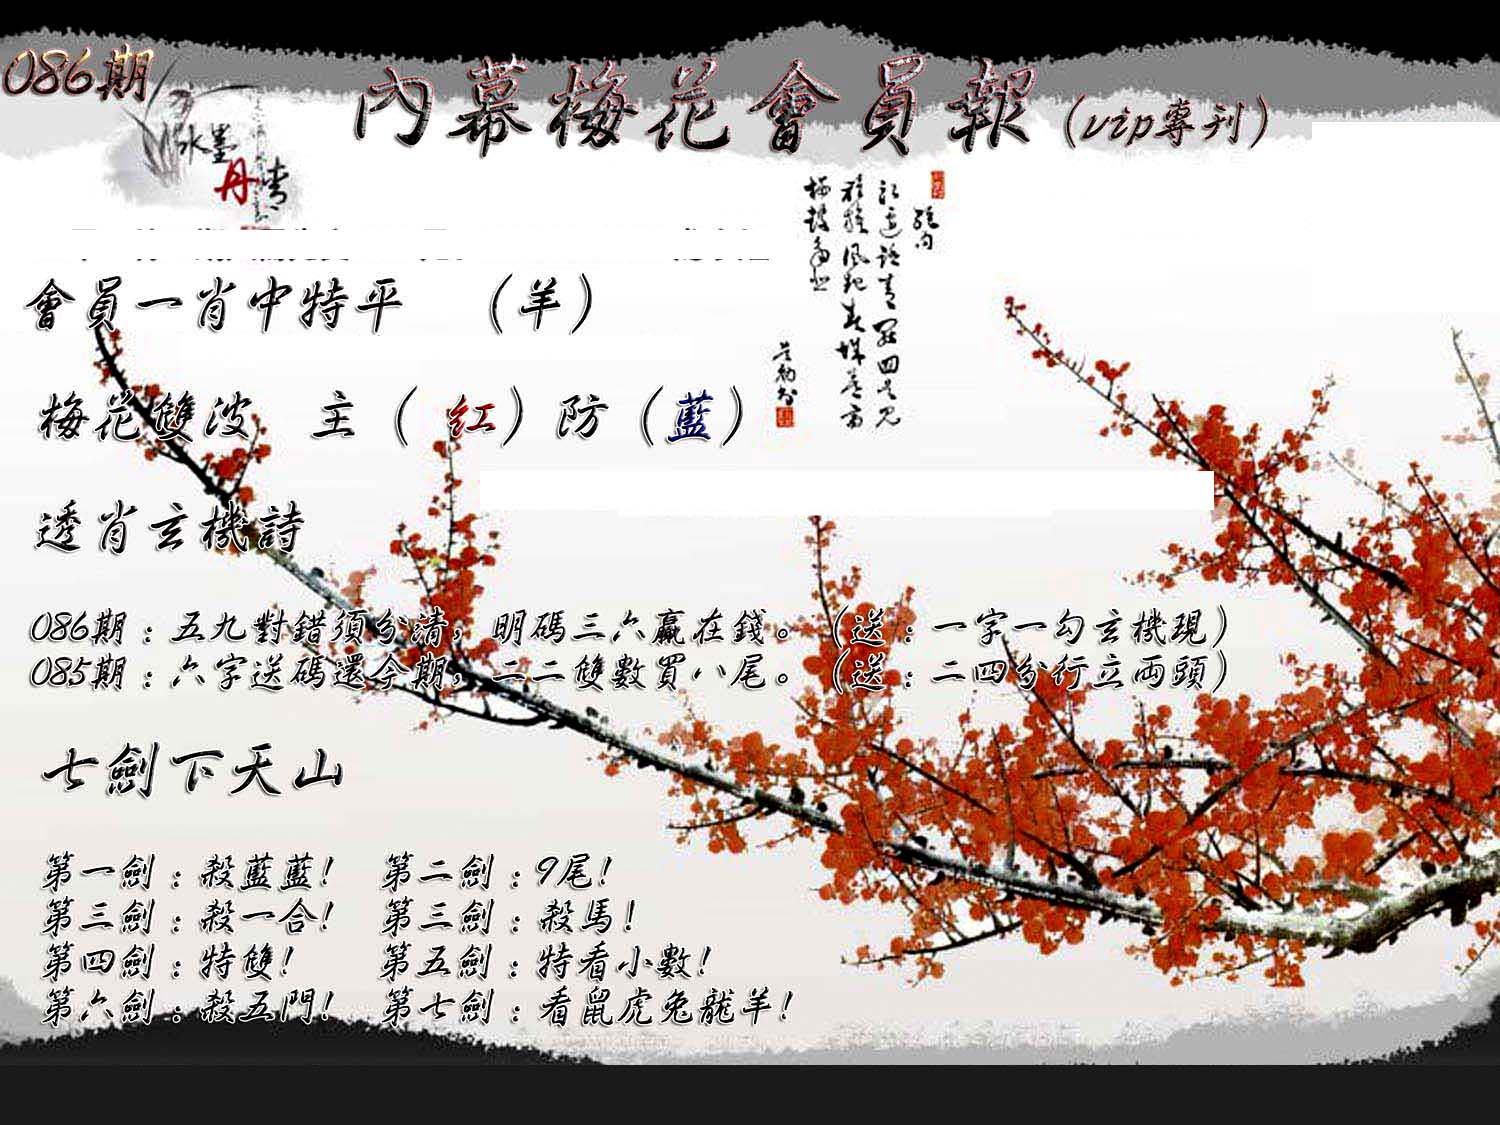 086期
內幕梅花會員報（vip專刊）
水墨
丹青
會員一肖中特平　（羊）
梅花雙波　主（紅）防（藍）
透肖玄機詩
086期：五九對錯須分清，明碼三六贏在錢。（送：一字一勾玄機現）
085期：六字送碼還今期，二二雙數買八尾。（送：二四分行立兩頭）
七劍下天山
第一劍：殺藍藍！　第二劍：9尾！
第三劍：殺一合！　第三劍：殺馬！
第四劍：特雙！　第五劍：特看小數！
第六劍：殺五門！　第七劍：看鼠虎兔龍羊！